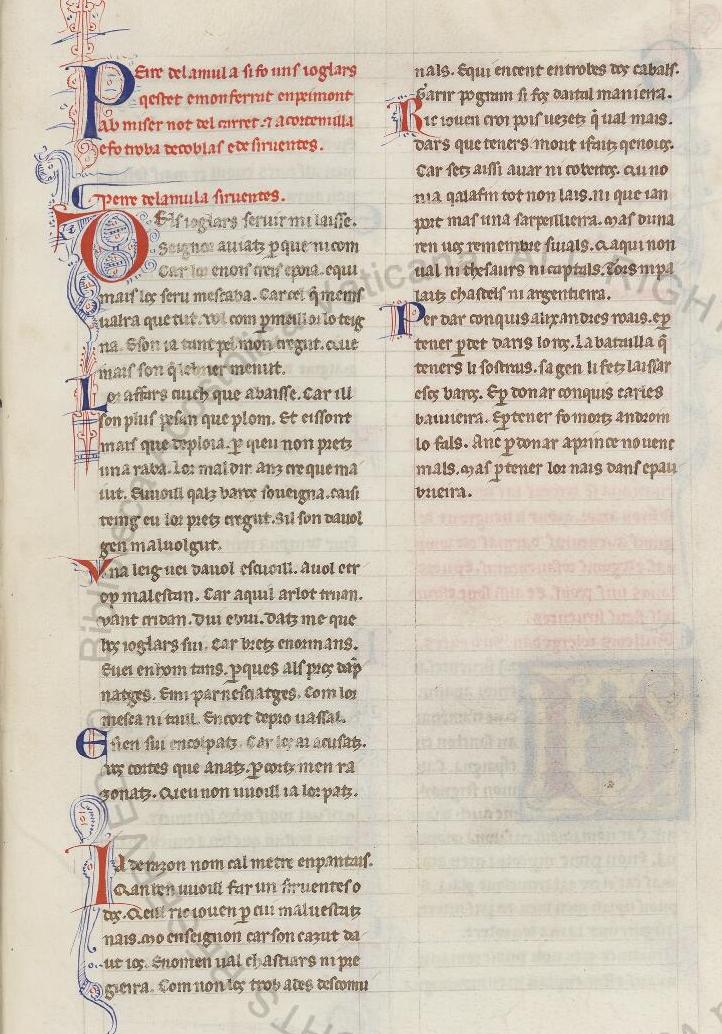 PEire delamula si fo uns ioglars
qestet emonferrat enpeimont
ab miser not del carret. 7 acortemilla
e fo trobaire decoblas e de siruentes.
Peire delamula siruentes.
DEls ioglars seruir mi laisse.
Seignor auiatz p que ni com
Car lor enois creis epoia. equi
mais los seru mescaba. Car cel q mens
ualra que tut. uol com p meillor lo teig
na. E son ia tant pel mon cregut. que
mais son qlebrier menut.
Lor affars cuich que abaisse. Car ill
son plus pesan que plom. Et eissont
mais que deploia. p qieu non pretz
una raba. lor mal dir anz cre que ma
iut. Enuoill qalz baros soueigna. caisi
teing eu lor pretz cregut. Sil son dauol
gen maluolgut.
Una leig uei dauol escuoill. Auol etr
op malestan. Car aquil arlot truan.
uant cridan. Dui e dui. datz me que
los ioglars sui. Car bretz enormans.
Euei en hom tans. pques als pros dap
natges. Emi par nesciatges. Com lor
mesca ni taill. En cort depro uassal.
Esien sui encolpatz. Car los ai acusatz.
uos cortes que anatz. p cortz men ra
zonatz. Qieu non uuoill ia lor patz.
IA derazon nom cal metre enpantais.
Qan ben uuoill far un siruentes o
dos. Qeill ric iouen p cui maluestatz
nais. mo enseignon car son cazut da
ut ios. Enomen ual chastiars ni pre
gieira. Com non los trob ades desconu
nals. Equi encent entrobes dos cabals.
Garir pogram si fos daital maniera.
Ric iouen croi pois uezetz q ual mais.
dars que teners. mout ifaitz qenoios.
Car setz aissi auar ni cobeitos. Qu no
nia qalafin tot non lais. ni que ian
port mas una sarpeilliera. mas duna
ren uos remembre siuals. Qaqui non
ual ni thesaurs ni captals. Tors ni pa
laitz chastels ni argentieira.
Per dar conquis alixandres roais. e p
tener pdet daris lo ros. la batailla q
teners li sostrais. sa gen li fetz laissar
esos baros. E p donar conquis carles
bauuieira. E p tener fo mortz androm
lo fals. Anc p donar a prince no uenc
mals. mas p tener lor nais dans epau
brieira.